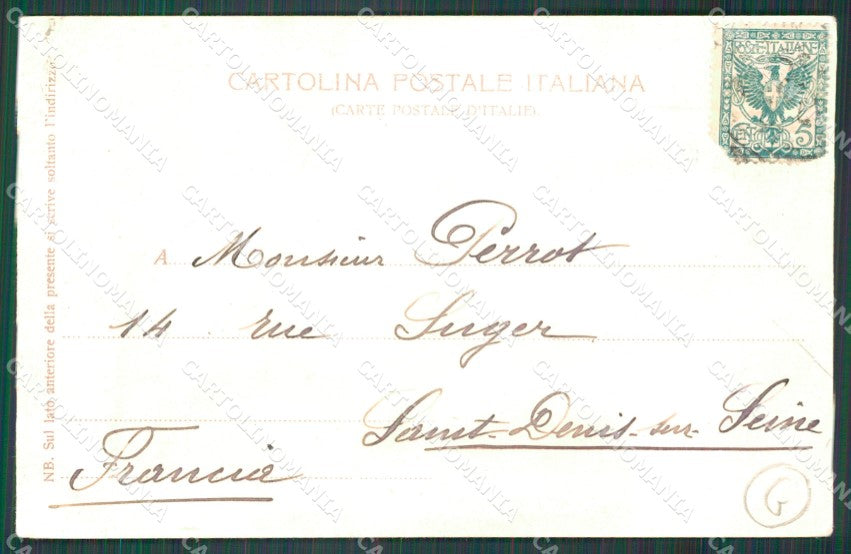 CARTOLINA POSTALE ITALIANA
(CARTE POSTALE D'ITALIE).
POSTE ITALIANE
CENT 5
A Monsieur Perrot
14 rue Suger
Saint-Denis-sur-Seine
Francia
NB. Sul lato anteriore della presente si scrive soltanto l'indirizzo.
G
CARTOLINOMANIA